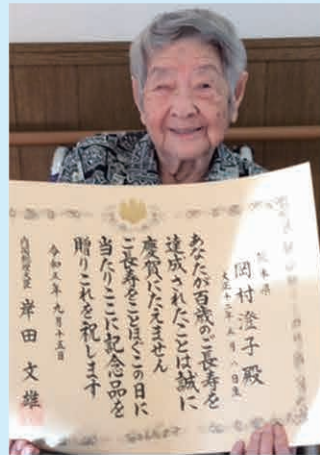 岡村澄子殿
大正十二年
あなたが百歳のご長寿を
達成されたことは誠に
慶賀にたえません
ご長寿をことほぐこの日に
当たりここに記念品を
贈りこれを祝します
令和五年九月十五日
内閣総理大臣 岸田文雄